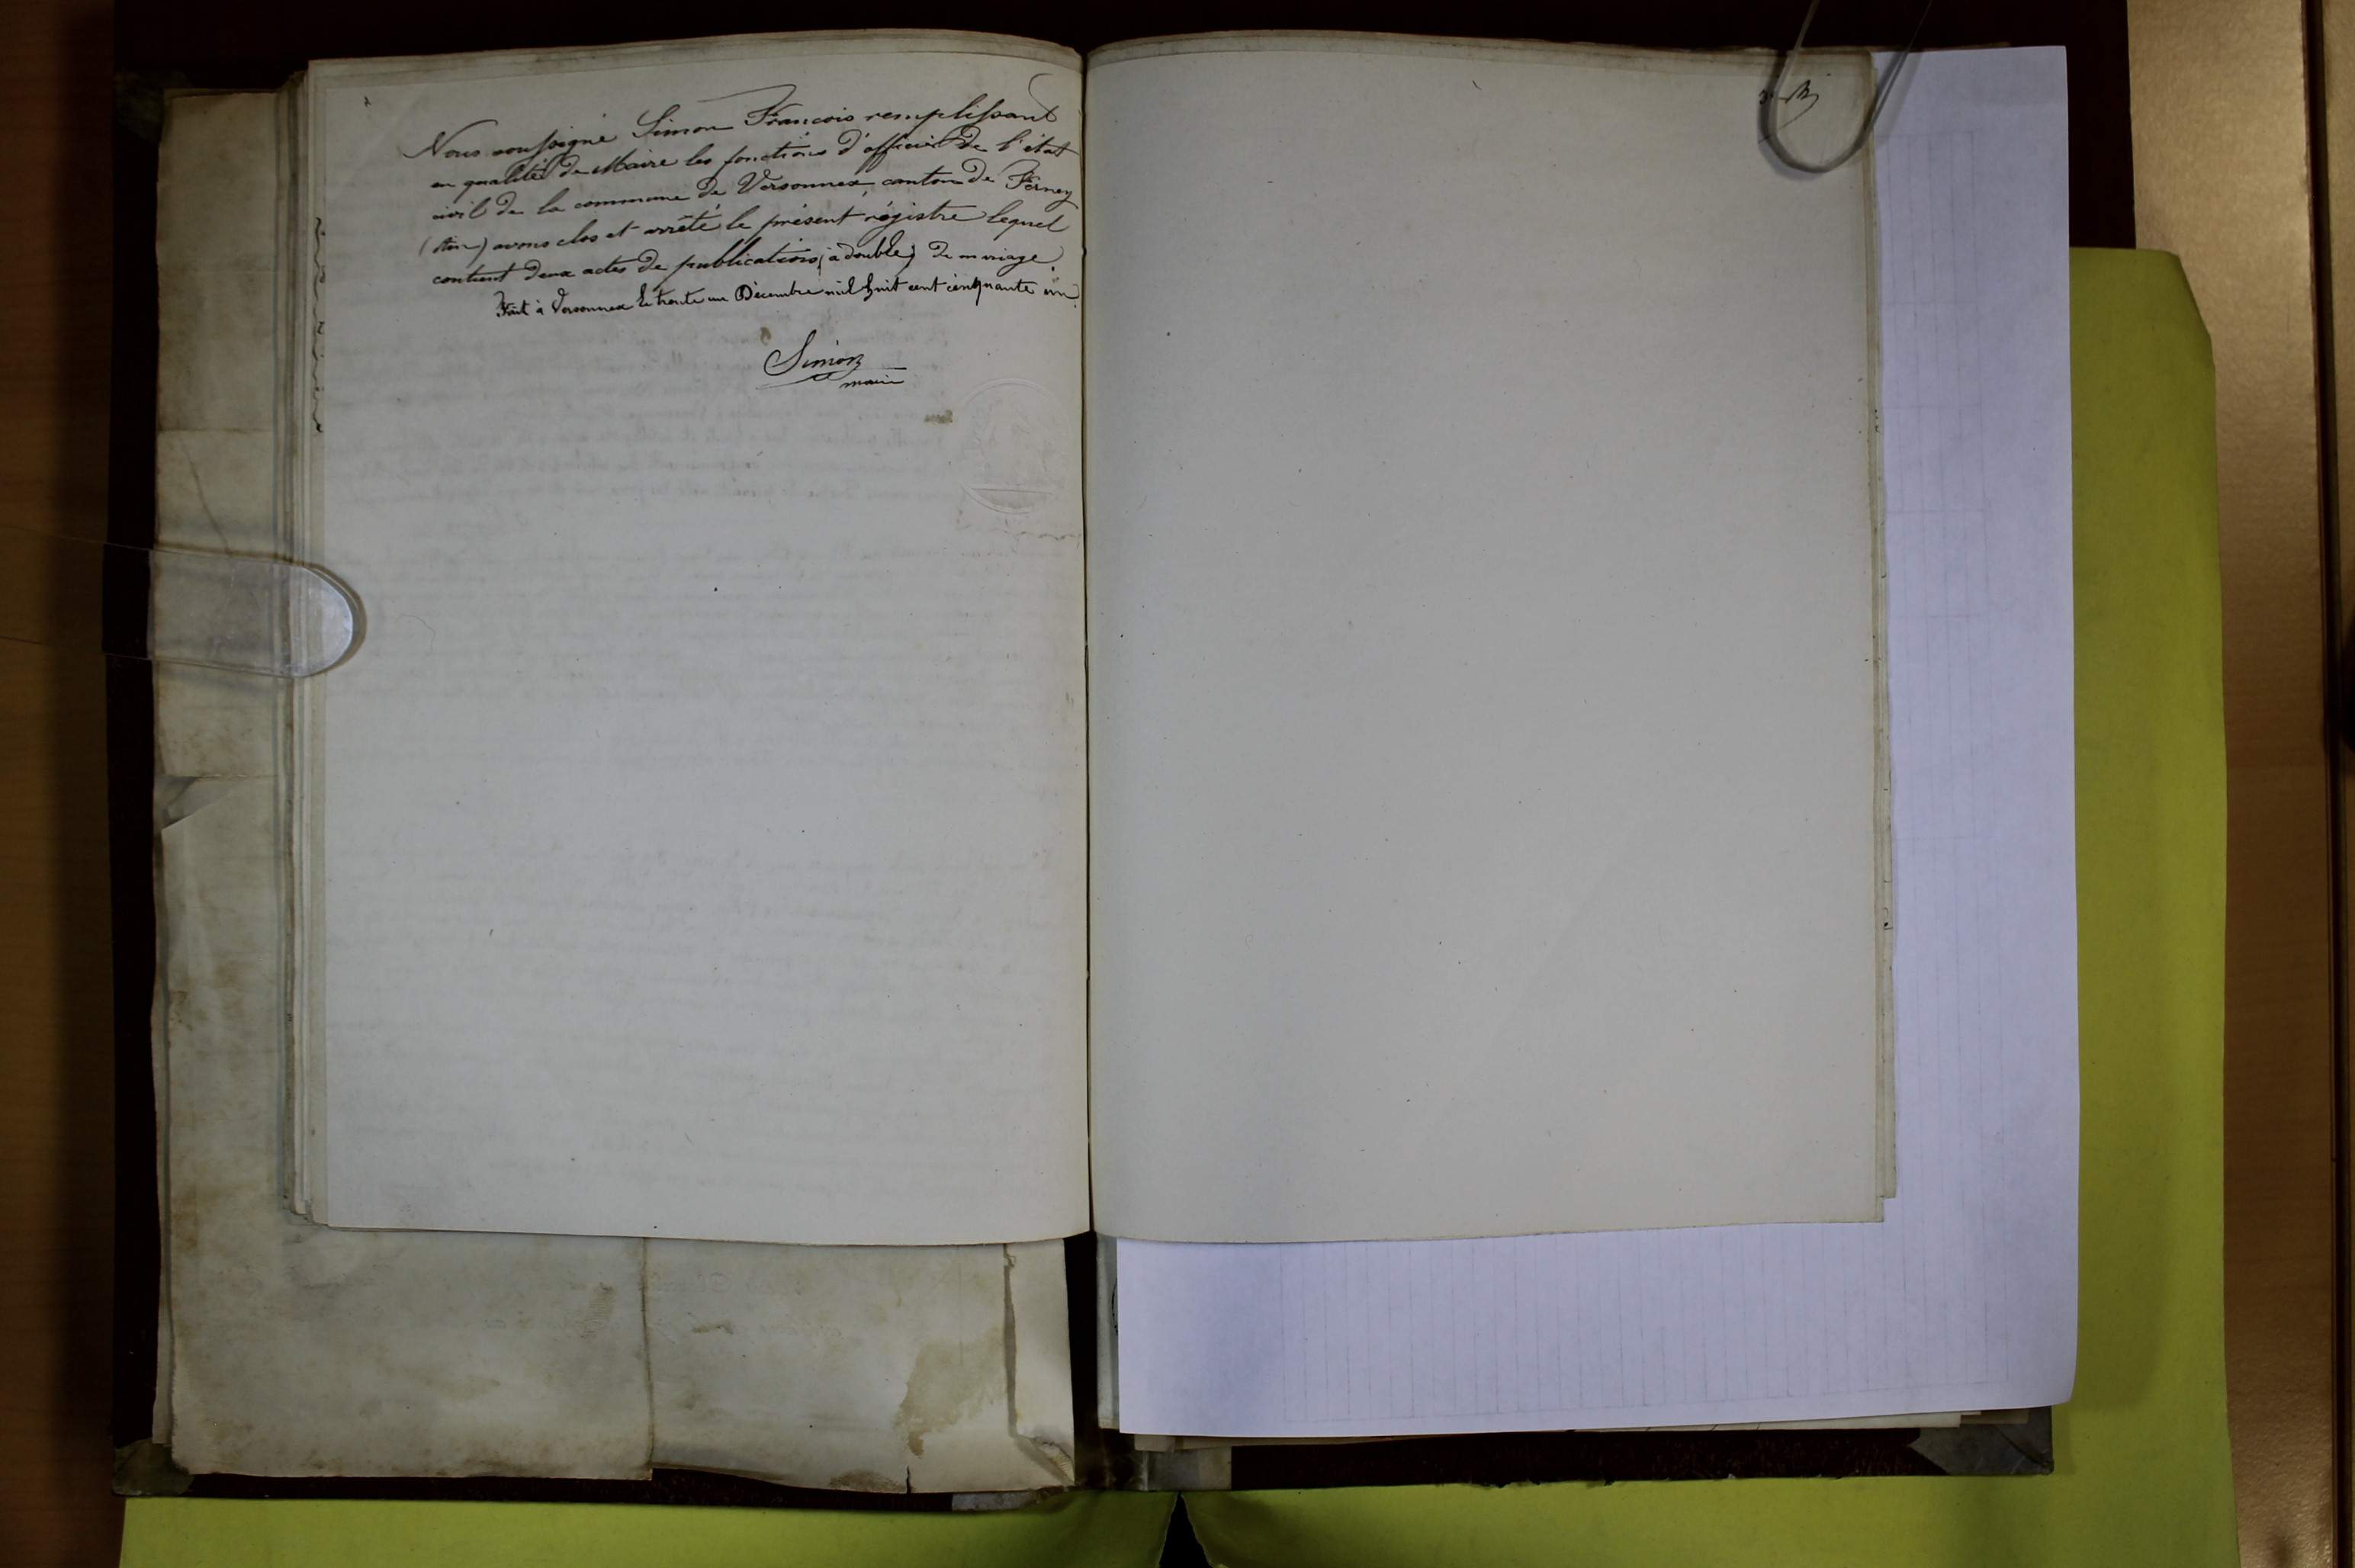 Nous soussigné Simon François remplissant
en qualité de Maire les fonctions d'officier de l'état
civil de la commune de Versonnex, canton de Ferney
(Ain) avons clos et arrêté le présent régistre lequel
contient deux actes de publications (à double) de mariage.
Fait à Versonnex le trente un Décembre mil huit cent cinquante un.
Simon
maire